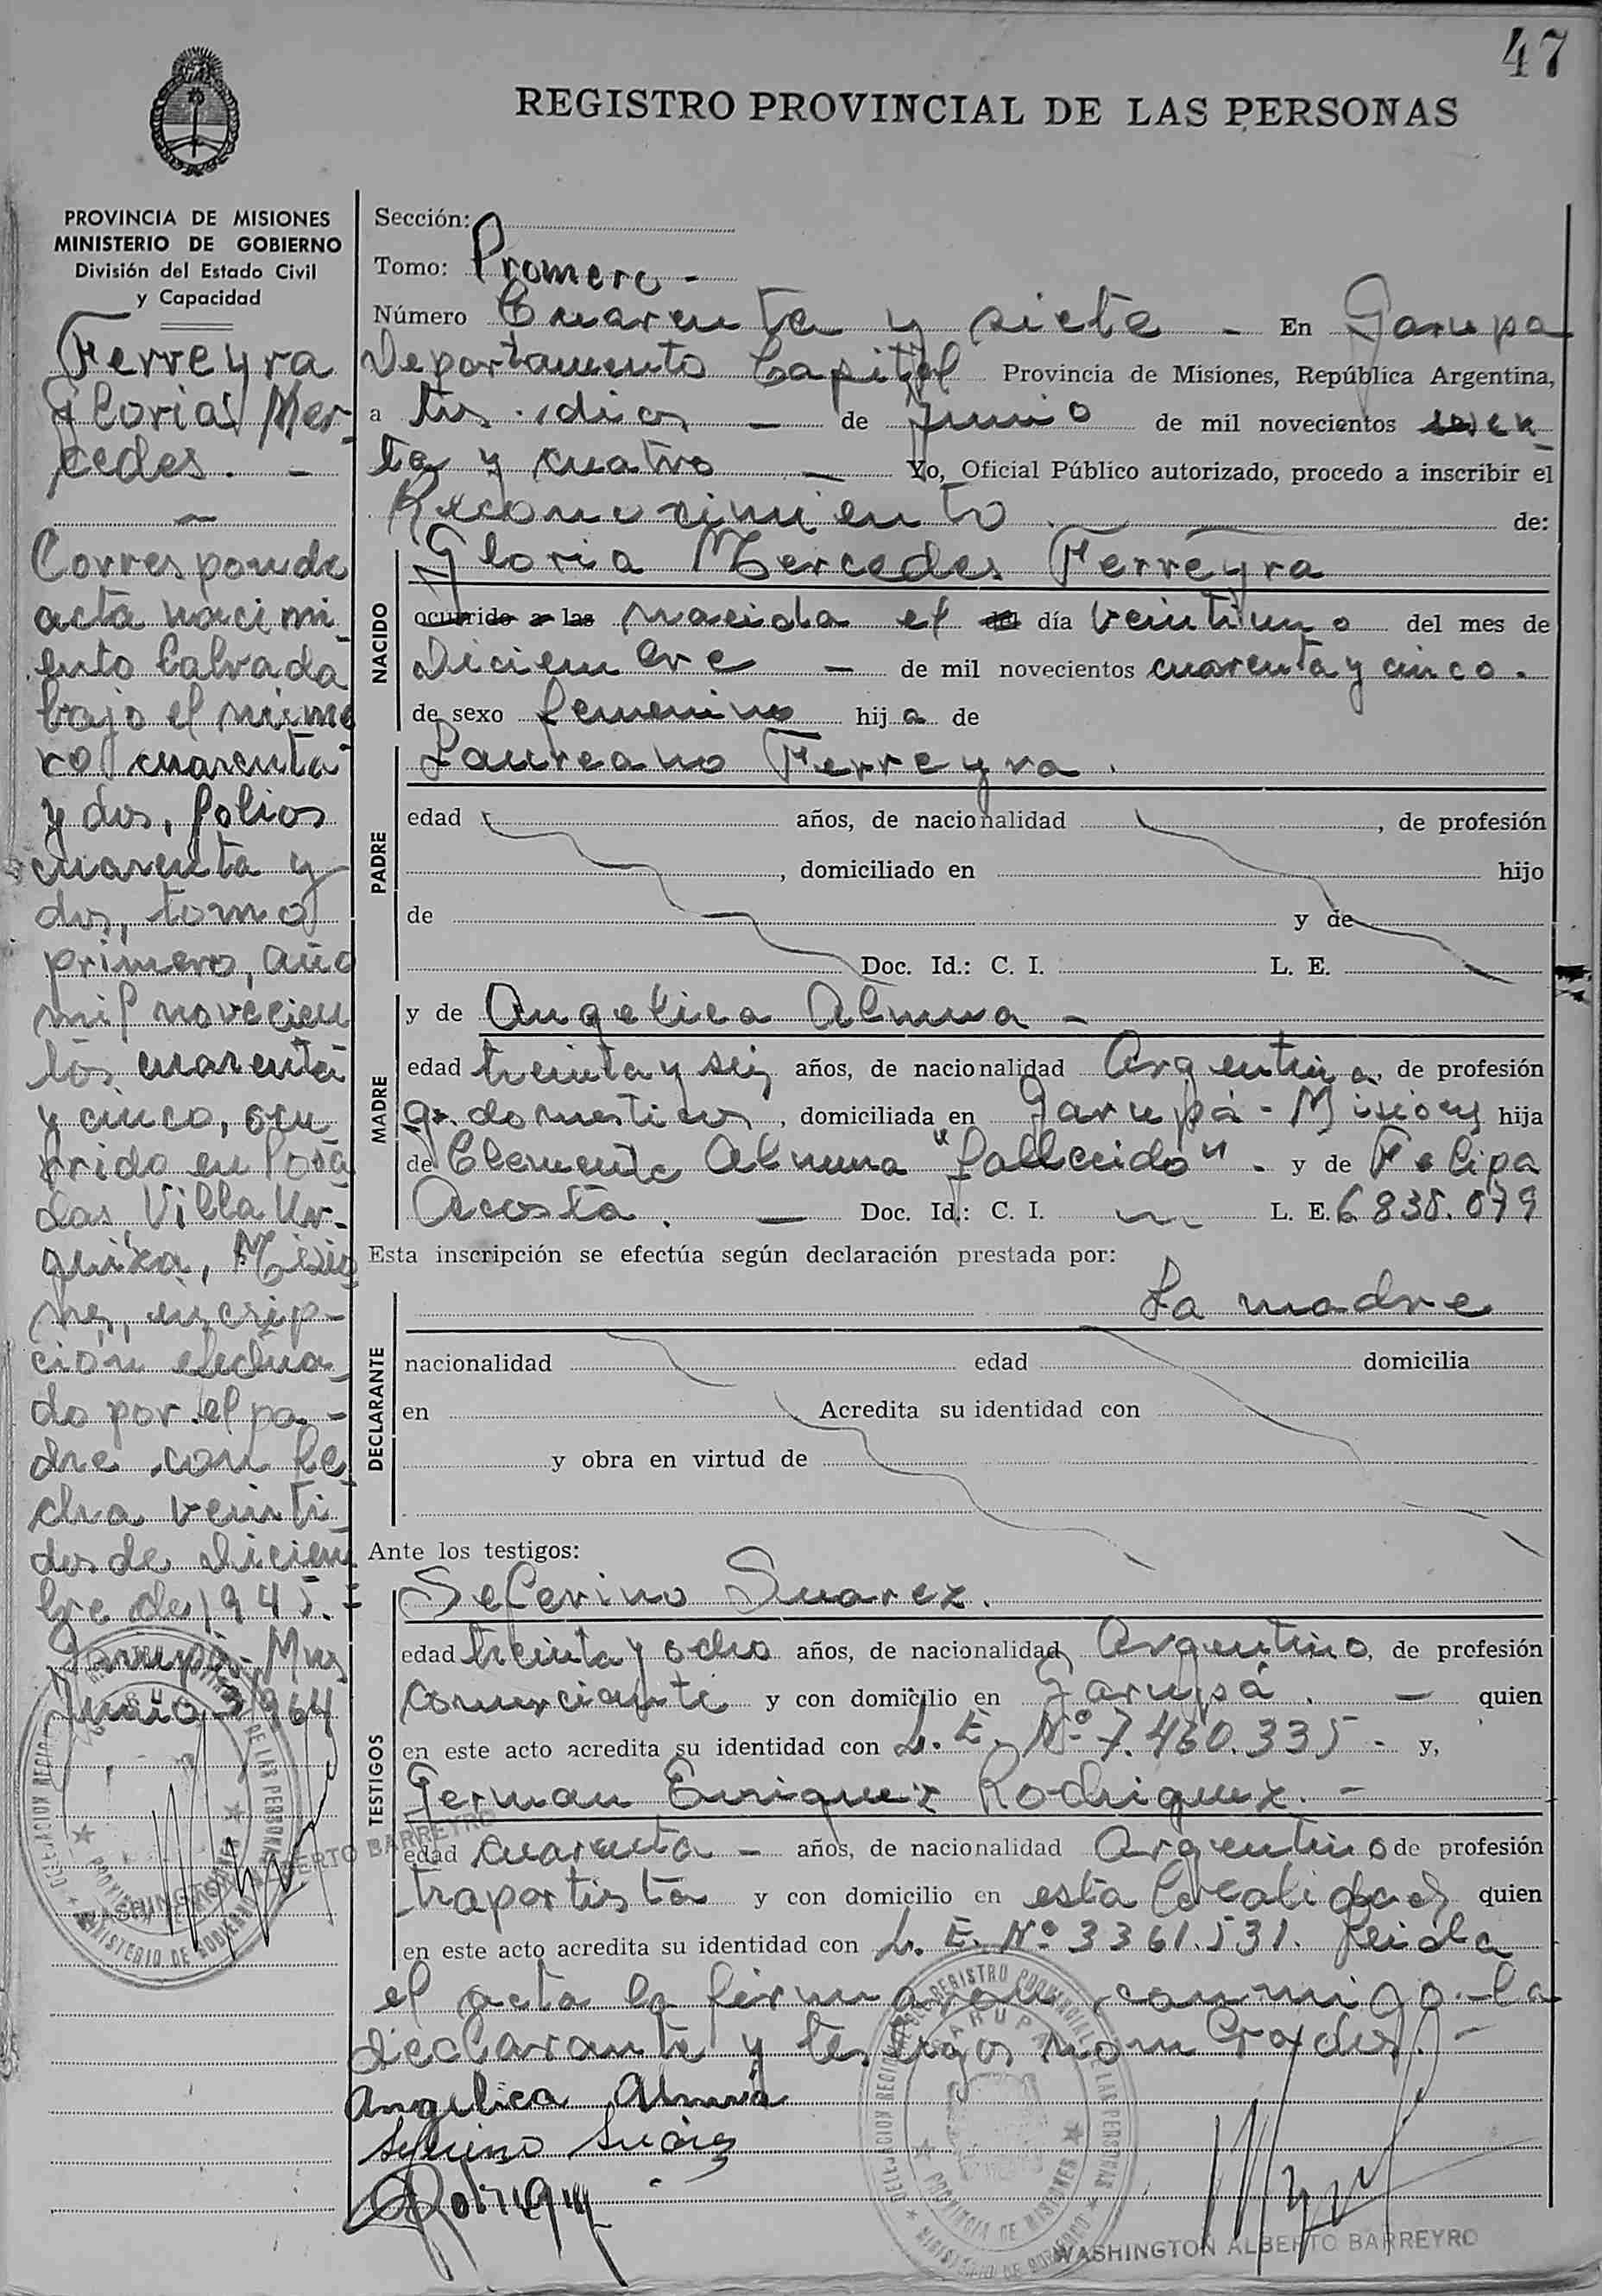 47
REGISTRO PROVINCIAL DE LAS PERSONAS
PROVINCIA DE MISIONES
MINISTERIO DE GOBIERNO
División del Estado Civil
y Capacidad
Ferreyra
Gloria Mer-
cedes. -
Corresponde
acta nacimi
ento labrada
bajo el núme
ro cuarenta
y dos, folios
cuarenta y
dos, tomo
primero, año
mil novecien
tos cuarenta
y cinco, ocu
rrido en Posa
das, Villa Ur-
quiza, Misio
nes, inscrip-
ción efectua
do por el pa-
dre con fe
cha veinti
dos de Diciem
bre de 1945.=
Garupá-Mnes
Junio 3/964
Sección:
Tomo: Promero -
Número Cuarenta y siete - En Garupa
Departamento Capital Provincia de Misiones, República Argentina,
a tres dias - de Junio de mil novecientos sesen
ta y cuatro - Yo, Oficial Público autorizado, procedo a inscribir el
Reconocimiento de:
NACIDO
Gloria Mercedes Ferreyra
ocurrido a las nacida el del día veintiuno del mes de
Diciembre - de mil novecientos cuarenta y cinco.
de sexo femenino hija de
PADRE
Laureano Ferreyra.
edad años, de nacionalidad , de profesión
, domiciliado en hijo
de y de
Doc. Id.: C. I. L. E.
MADRE
y de Angelica Almua -
edad treinta y seis años, de nacionalidad Argentina, de profesión
q. domesticos, domiciliada en Garupá - Misiones hija
de Clemente Almua "fallecido". y de Felipa
Acosta. - Doc. Id.: C. I. L. E. 6838.079
Esta inscripción se efectúa según declaración prestada por:
DECLARANTE
La madre
nacionalidad edad domicilia
en Acredita su identidad con
y obra en virtud de
Ante los testigos:
TESTIGOS
Seferino Suarez.
edad treinta y ocho años, de nacionalidad Argentino, de profesión
comerciante y con domicilio en Garupá. - quien
en este acto acredita su identidad con L. E. Nº 7.460.335 - y,
German Enriquez Rodriguez. -
edad cuarenta - años, de nacionalidad Argentino de profesión
traportista y con domicilio en esta localidad quien
en este acto acredita su identidad con L. E. Nº 3361.531. Leida
el acta la firmaron conmigo la
declarante y testigos nombrados. -
Angelica Almua
Seferino Suarez
Rodriguez
DELEGACION REGISTRO PROVINCIAL DE LAS PERSONAS
GARUPA
PROVINCIA DE MISIONES
MINISTERIO DE GOBIERNO
WASHINGTON ALBERTO BARREYRO
WASHINGTON ALBERTO BARREYRO